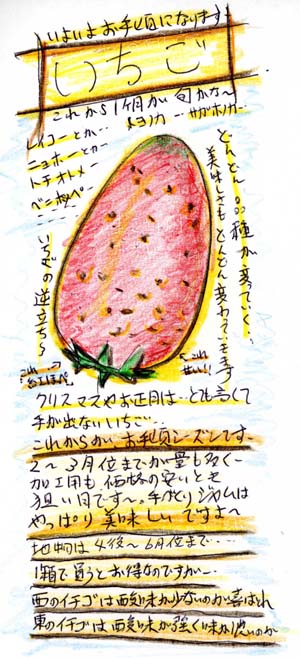 いよいよお手頃になります
いちご
これから1ヶ月が旬かな〜
レイコーとか…
ニョホーとか
トチオトメ…
ベニホッペ…
トヨノカ… サガホノカ…
どんどん品種が変っていく、
美味しさもどんどん変わっていきます
いちごの逆立ち
これ
クリスマスやお正月は…とても高くて
手が出ないいちご…
これからが、お手頃シーズンです
2〜3月位までが量も多く
加工用も価格の安いとき
狙い目です〜。手作りジャムは
やっぱり美味しいですよ〜
地物は4後〜6月位まで…
1箱で買うとお得なのですが…
西のイチゴは酸味が少ないのが喜ばれ
東のイチゴは酸味が強く味が濃いのが